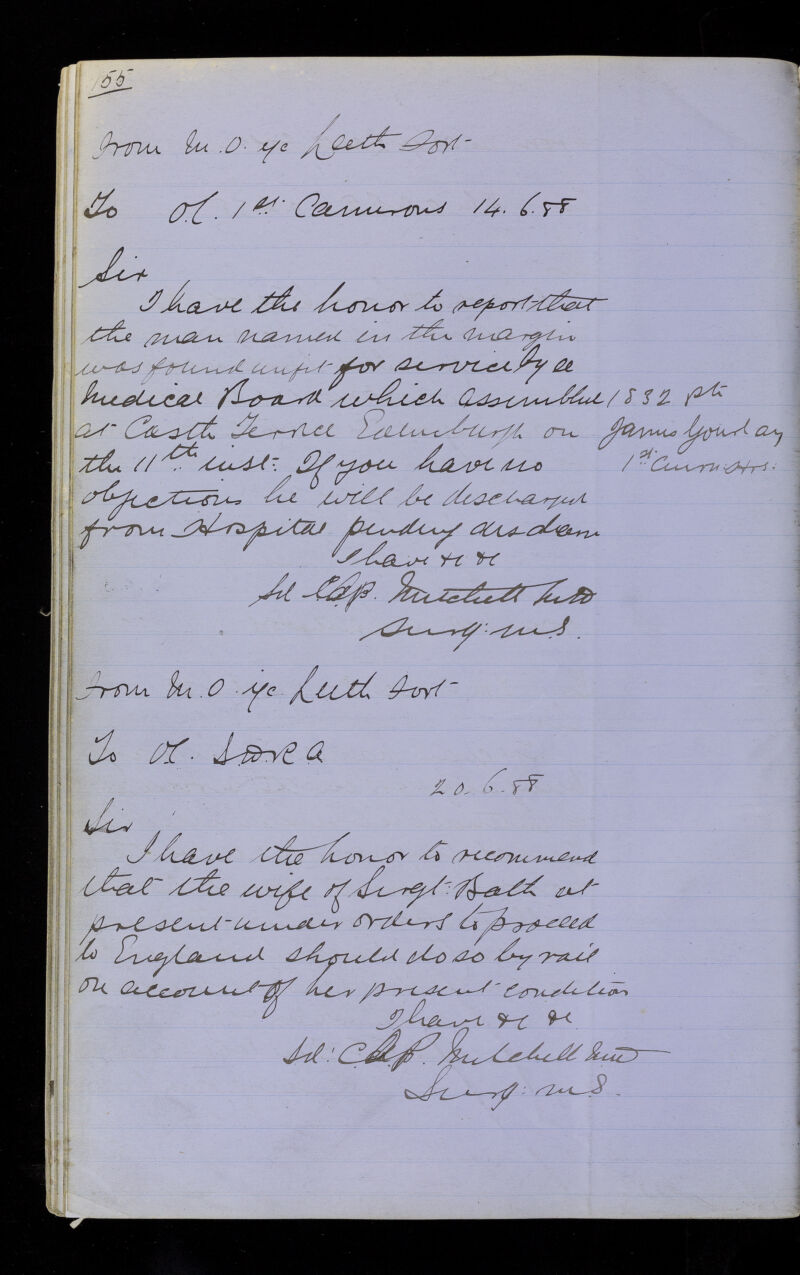 155
From M.O. i/c Leith Fort
To O.C. 1st Camerons 14.6.88
Sir
I have the honor to report that
the man named in the margin
was found unfit for service by a
Medical Board which assembled
1832 Pte
at Castle Terrace Edinburgh on
James Gourlay
the 11th inst: If you have no
1st Camerons.
objections he will be discharged
from Hospital pending
I have &c &c
Sd C.A.P. Mitchell MD
Surg: M.S.
From M.O. i/c Leith Fort
To OC.
20.6.88
Sir
I have the honor to recommend
that the wife of Sergt: Bath at
present under orders to proceed
to England should do so by rail
on account of her present condition
I have &c &c
Sd: C.A.P. Mitchell MD
Surg: M.S.